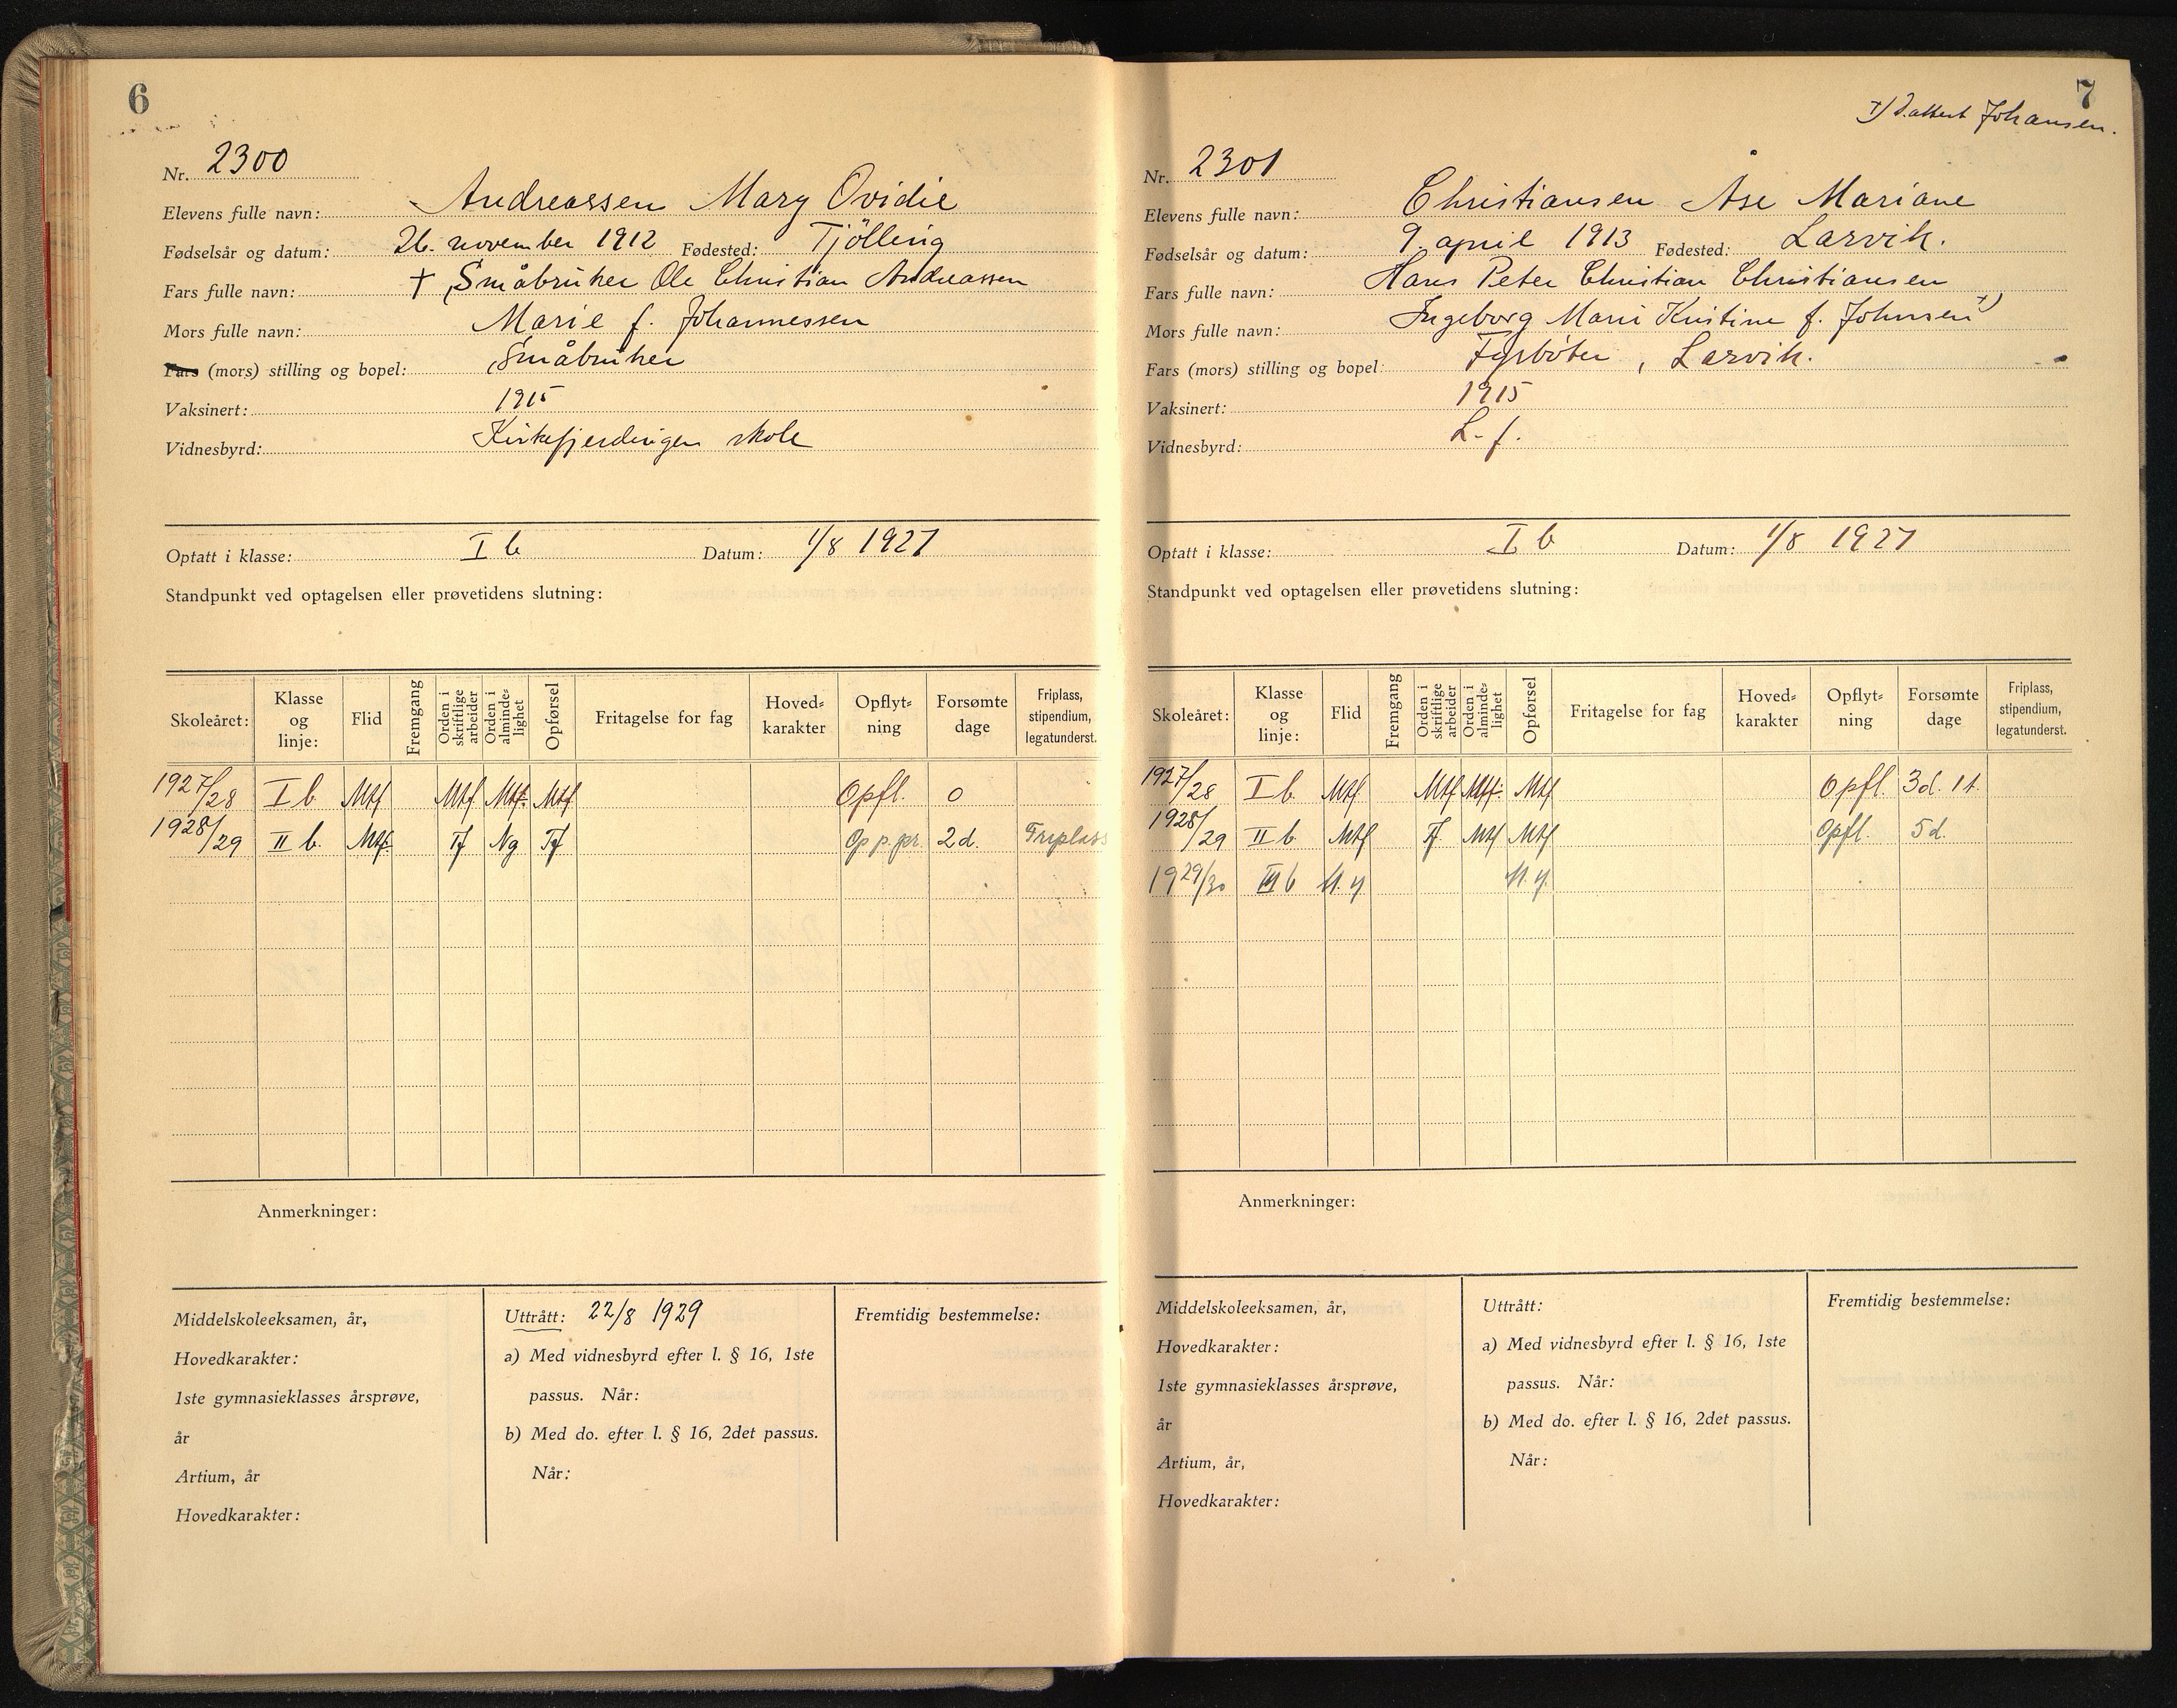 6
Nr. 2300
Elevens fulle navn: Andreassen Mary Ovidie
Fødselsår og datum: 26. november 1912 Fødested: Tjölling
Fars fulle navn: † Småbruker Ole Christian Andreassen
Mors fulle navn: Marie f. Johannessen
Fars (mors) stilling og bopel: Småbruker
Vaksinert: 1915
Vidnesbyrd: Kirkefjerdingen skole
Optatt i klasse: I b Datum: 1/8 1927
Standpunkt ved optagelsen eller prøvetidens slutning:
Skoleåret: Klasse og linje: Flid Fremgang Orden i skriftlige arbeider Orden i alminde-lighet Opførsel Fritagelse for fag Hoved-karakter Opflyt-ning Forsømte dage Friplass, stipendium, legatunderst.
1927/28 I b Mtf Mtf Mtf. Mtf Opfl. 0
1928/29 II b. Mtf. Tf Ng Tf Op p. pr. 2 d. Friplass
Anmerkninger:
Middelskoleeksamen, år,
Hovedkarakter:
1ste gymnasieklasses årsprøve,
år
Artium, år
Hovedkarakter:
Uttrått: 22/8 1929
a) Med vidnesbyrd efter l. § 16, 1ste
passus. Når:
b) Med do. efter l. § 16, 2det passus.
Når:
Fremtidig bestemmelse:
7
Johansen.
Nr. 2301
Elevens fulle navn: Christiansen Åse Mariane
Fødselsår og datum: 9. april 1913 Fødested: Larvik.
Fars fulle navn: Hans Peter Christian Christiansen
Mors fulle navn: Ingeborg Marie Kristine f. Johnsen x)
Fars (mors) stilling og bopel: Fyrbøter, Larvik.
Vaksinert: 1915
Vidnesbyrd: L. f.
Optatt i klasse: I b Datum: 1/8 1927
Standpunkt ved optagelsen eller prøvetidens slutning:
Skoleåret: Klasse og linje: Flid Fremgang Orden i skriftlige arbeider Orden i alminde-lighet Opførsel Fritagelse for fag Hoved-karakter Opflyt-ning Forsømte dage Friplass, stipendium, legatunderst.
1927/28 I b. Mtf Mtf Mtf. Mtf Opfl. 3 d. 1 t.
1928/29 II b Mtf Tf Mtf Mtf Opfl. 5 d.
1929/30 III b
Anmerkninger:
Middelskoleeksamen, år,
Hovedkarakter:
1ste gymnasieklasses årsprøve,
år
Artium, år,
Hovedkarakter:
Uttrått:
a) Med vidnesbyrd efter l. § 16, 1ste
passus. Når:
b) Med do. efter l. § 16, 2det passus.
Når:
Fremtidig bestemmelse: